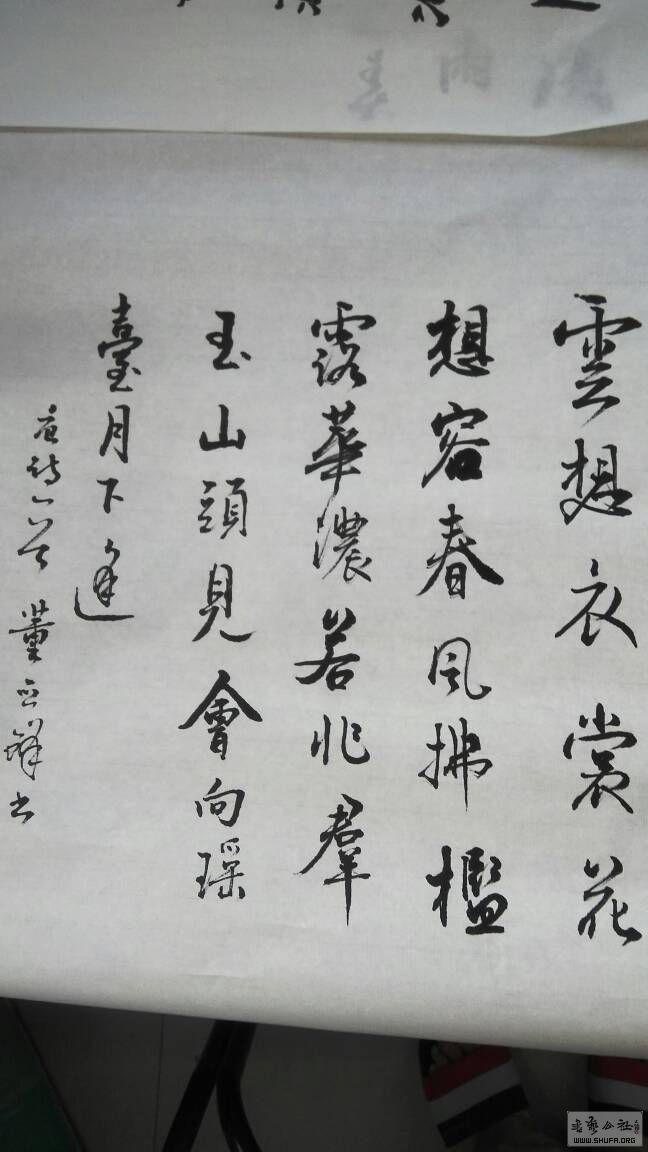 雲想衣裳花
想容春風拂檻
露華濃若非羣
玉山頭見會向瑶
臺月下逢
唐詩一首 董
書藝公社
WWW.SHUFA.ORG